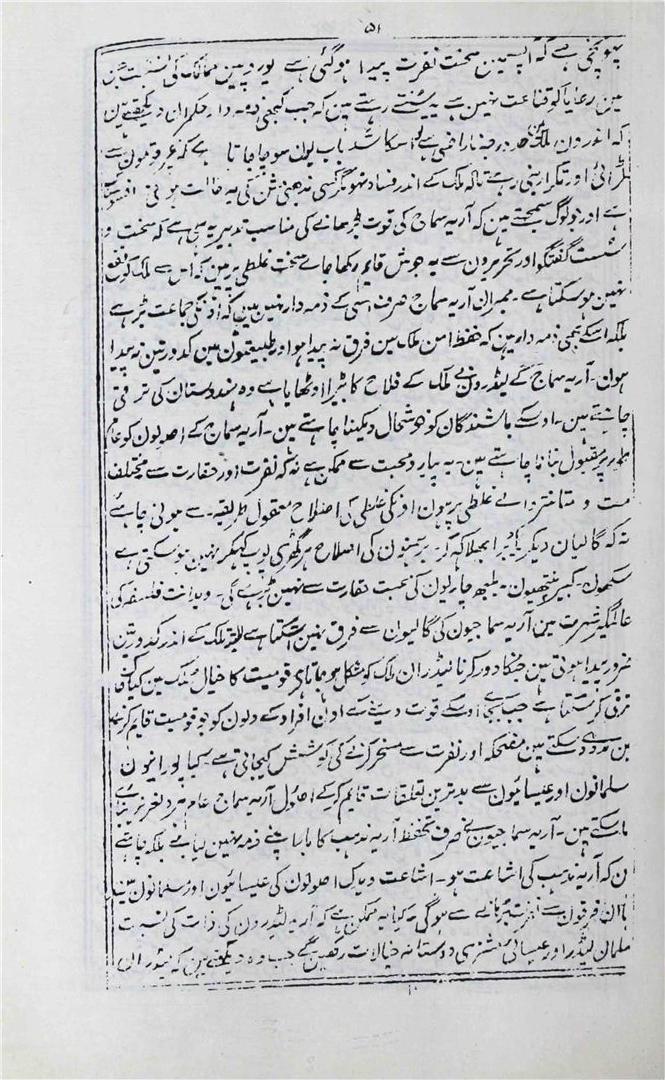 ۵۱
پہونچتی ہے کہ آپسمین سخت نفرت پیدا ہوگئی ہے یورپین ممالک کی نسبت جن
مین رعایا کو قناعت نہین ہے یہ سنتے رہتے ہین کہ جب کبھی حکمران دیکھتے ہین
کہ اندرون ملک مین حد درجہ ناراضی ہے تو اسکا سد باب یون سوچا جاتا ہے کہ غیر قومون سے
لڑائی اور تکرار بنی رہے تاکہ ملک کے اندر فساد نہو مگر کسی مذہبی مشن کی یہ حالت ہونی افسوسناک
ہے اور جو لوگ سمجھتے ہین کہ آریہ سماج کی قوت بڑھانے کی مناسب تدبیر یہی ہے کہ سخت و
سست گفتگو اور تحریرون سے یہ جوش قایم رکھا جاے سخت غلطی پر ہین کہ اس سے ملک کو نفع
نہین ہوسکتا ہے۔ ممبران آریہ سماج صرف اسی کے ذمہ دار نہین ہین کہ اونکی جماعت بڑہے
بلکہ اسکے بھی ذمہ دار ہین کہ حفظ امن ملک مین فرق نہ پیدا ہو اور طبیعتون مین کدورتین نہ پیدا
ہون۔ آریہ سماج کے لیڈرون نے ملک کے فلاح کا بیڑا اوٹھایا ہے وہ ہندوستان کی ترقی
چاہتے ہین۔ اوسکے باشندگان کو خوشحال دیکھنا چاہتے ہین۔ آریہ سماج کے اصولون کو عام
طور پر مقبول بنانا چاہتے ہین۔ یہ پیار و محبت سے ممکن ہے نہ کہ نفرت اور حقارت سے مختلف
مت و متانتر والے غلطی پر ہون اونکی غلطی کی اصلاح معقول طریقہ سے ہونی چاہئے
نہ کہ گالیان دیکر یا برا بھلا کہہ کر۔ برہمنون کی اصلاح ہر گھڑی پوپ کہکر نہین ہوسکتی ہے
سکھون۔ کبیر پنتھیون۔ بلبھ چاریون کی محبت حقارت سے نہین بڑہے گی۔ ویدانت فلسفہ کی
عالمگیر شہرت مین آریہ سماجیون کی گالیون سے فرق نہین آسکتا ہے البتہ ملک کے اندر کدورتین
ضرور پیدا ہوتی ہین جنکا دور کرنا لیڈران ملک کو مشکل ہو جاتا ہے قومیت کا خیال ملک مین کیا خاک
ترقی کرسکتا ہے جب بجاے اوسکے قوت دینے کے اون افراد کے دلون کو جو قومیت قایم کرنے
مین مدد دے سکتے ہین مضحکہ اور نفرت سے منحرف کرنے کی کوشش کیجاتی ہے۔ کیا پورانیون
مسلمانون اور عیسائیون سے بدترین تعلقات قایم کرکے اصول آریہ سماج عام ہردلعزیز بناے
جاسکتے ہین۔ آریہ سماجیون نے صرف تحفظ آریہ مذہب کا بار اپنے ذمہ نہین لیا ہے بلکہ چاہتے
ہین کہ آریہ مذہب کی اشاعت ہو۔ اشاعت ویدک اصولون کی عیسائیون اور مسلمانون مین
یا ان فرقون سے نفرت بڑہانے سے ہوگی۔ کیا یہ ممکن ہے کہ آریہ لیڈرون کی ذات کی نسبت
مسلمان لیڈر اور عیسائی مشنری دوستانہ خیالات رکھین گے جب وہ دیکھتے ہین کہ لیڈران